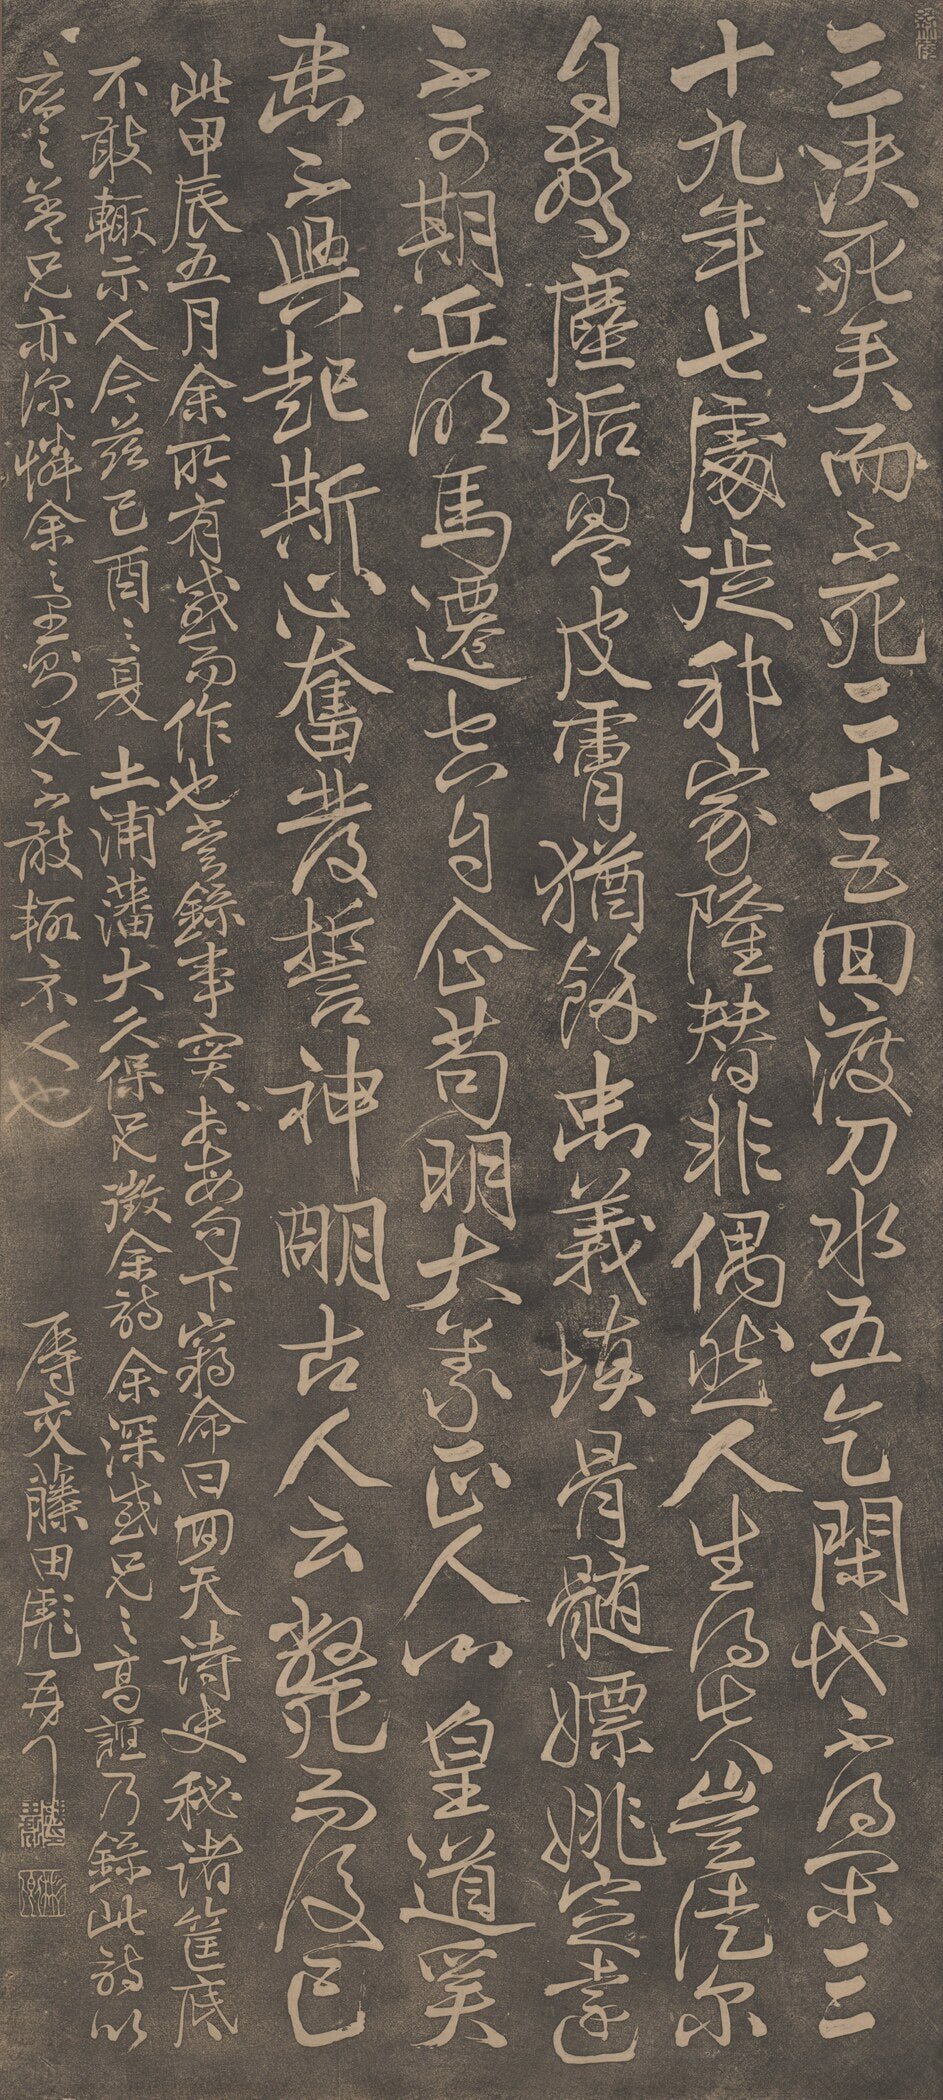 三決死矣而不死二十五回渡刀水五乞閑地不得閑三
十九年七處徙邦家隆替非偶然人生得失豈徒尔
自驚塵垢盈皮膚猶餘忠義填骨髄嫖姚定遠
不可期丘明馬遷空自企苟明大義正人心皇道奚
患不興起斯心奮發誓神明古人云斃而後已
此甲辰五月余所有感而作也豈錄事実未安句下窮命曰回天詩史秘諸筐底
不敢輙示人今茲己酉之夏土浦藩大久保兄徴余詩余深感兄之高誼乃錄此詩以
答之蓋兄亦深憐余之至而又不敢輙示人也
辱交藤田彪再行